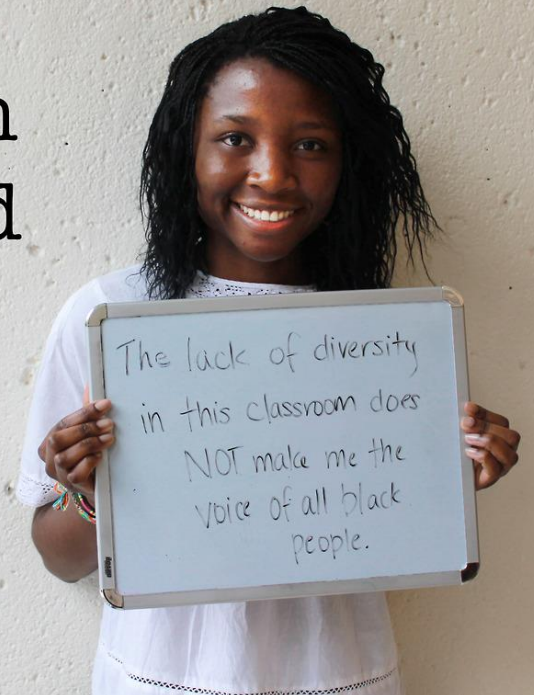 n
d
The lack of diversity
in this classroom does
NOT make me the
voice of all black
people.